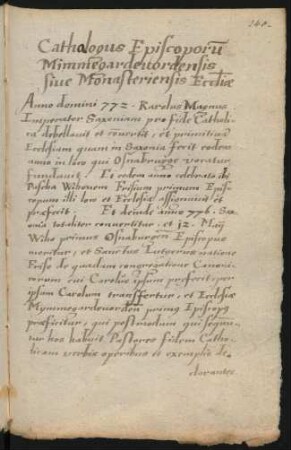 Cathalogus Episcoporū
Mimmegardeuordensis
siue Monasteriensis Eccl̄iæ
Anno domini 772. Karolus Magnus
Imperator Saxoniam pro fide Catholi-
ca debellauit et conuertit, et primitiuā
Ecclesiam quam in Saxonia fecit eodem
anno in loco qui Osnaburgge vocatur
fundauit. Et eodem anno celebrato die
Pascha Wihonem Frisium primum Epis-
copum illi loco et Ecclesiæ assignauit et
præfecit. Et deinde anno 776. Sax-
onia totaliter conuertitur, et 12. Maij
Wiho primus Osnaburgen̄ Episcopus
moritur, et Sanctus Lutgerus natione
Friso de quadam congregatione Canoni-
corum cui Carolus ipsum præfecit, per
ipsum Carolum transfertur, et Ecclesiæ
Mymmegardeuorden̄ primus Episcopus
præficitur, qui postmodum qui sequun-
tur hos habuit Pastores fidem Catho-
licam verbis operibus et exemplis de-
clarantes